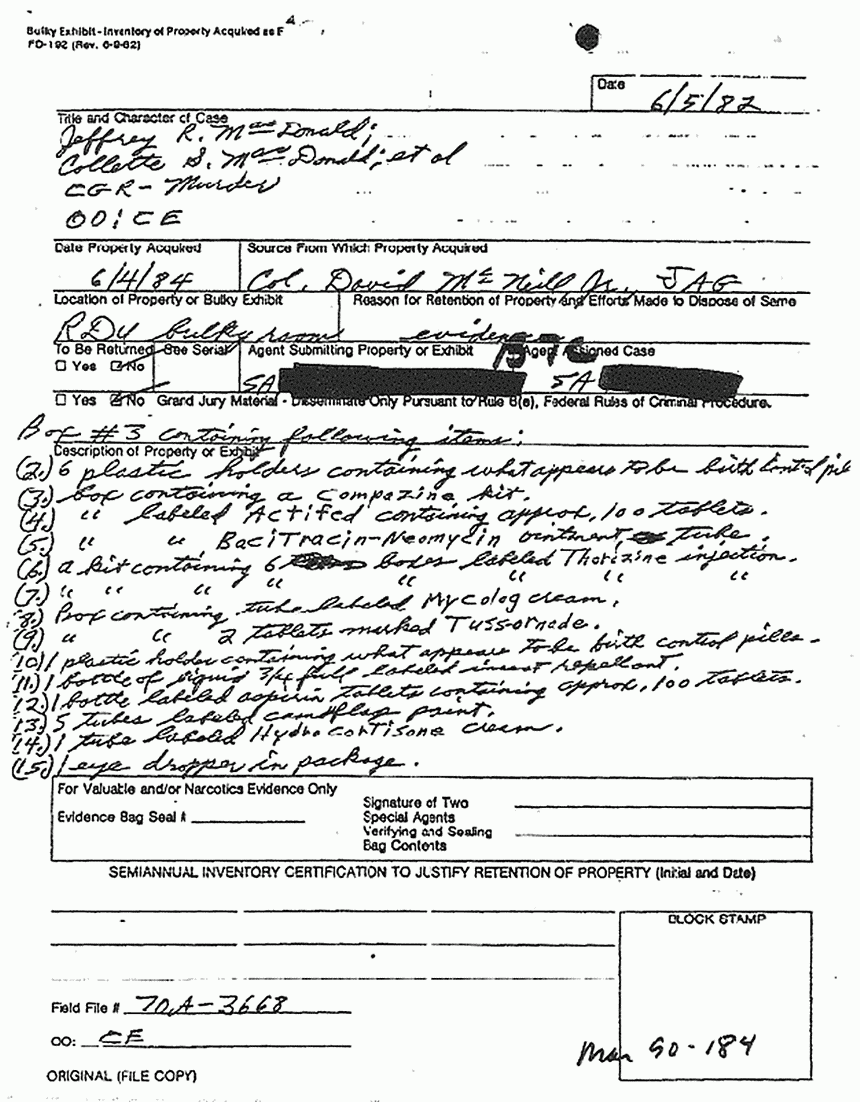 Bulky Exhibit - Inventory of Property Acquired as
FD-192 (Rev. 6-9-82)
Date
6/5/82
Title and Character of Case
Jeffrey R. MacDonald;
Collette S. MacDonald; et al
CGR - Murder
OO: CE
Date Property Acquired
Source From Which Property Acquired
6/4/84
Col. David McNeill Jr., JAG
Location of Property or Bulky Exhibit
Reason for Retention of Property and Efforts Made to Dispose of Same
RDU bulky room
evidence
To Be Returned See Serial Agent Submitting Property or Exhibit Agent Assigned Case
☐ Yes ☑ No
SA SA
☐ Yes ☑ No Grand Jury Material - Disseminate Only Pursuant to Rule 6(e), Federal Rules of Criminal Procedure.
Box #3 containing following items:
Description of Property or Exhibit
(2.) 6 plastic holders containing what appears to be birth control pills
(3.) box containing a Compazine kit.
(4.) " labeled Actifed containing approx. 100 tablets.
(5.) " " BaciTracin-Neomycin ointment tube.
(6.) a kit containing 6 boxes labeled Thorizine injection.
(7.) " " " " " " " "
(8.) Box containing tube labeled Mycolog cream.
(9.) " " 2 tablets marked Tuss-ornade.
(10.) 1 plastic holder containing what appears to be birth control pills.
(11.) 1 bottle of liquid 3/4 full labeled insect repellant.
(12.) 1 bottle labeled aspirin tablets containing approx. 100 tablets.
(13.) 5 tubes labeled camoflag paint.
(14.) 1 tube labeled Hydrocortisone cream.
(15.) 1 eye dropper in package.
For Valuable and/or Narcotics Evidence Only
Evidence Bag Seal #
Signature of Two
Special Agents
Verifying and Sealing
Bag Contents
SEMIANNUAL INVENTORY CERTIFICATION TO JUSTIFY RETENTION OF PROPERTY (Initial and Date)
BLOCK STAMP
Field File # 70A-3668
OO: CE
90-184
ORIGINAL (FILE COPY)